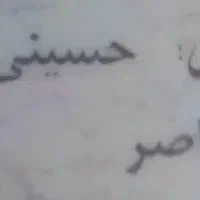 حسینی
اصر